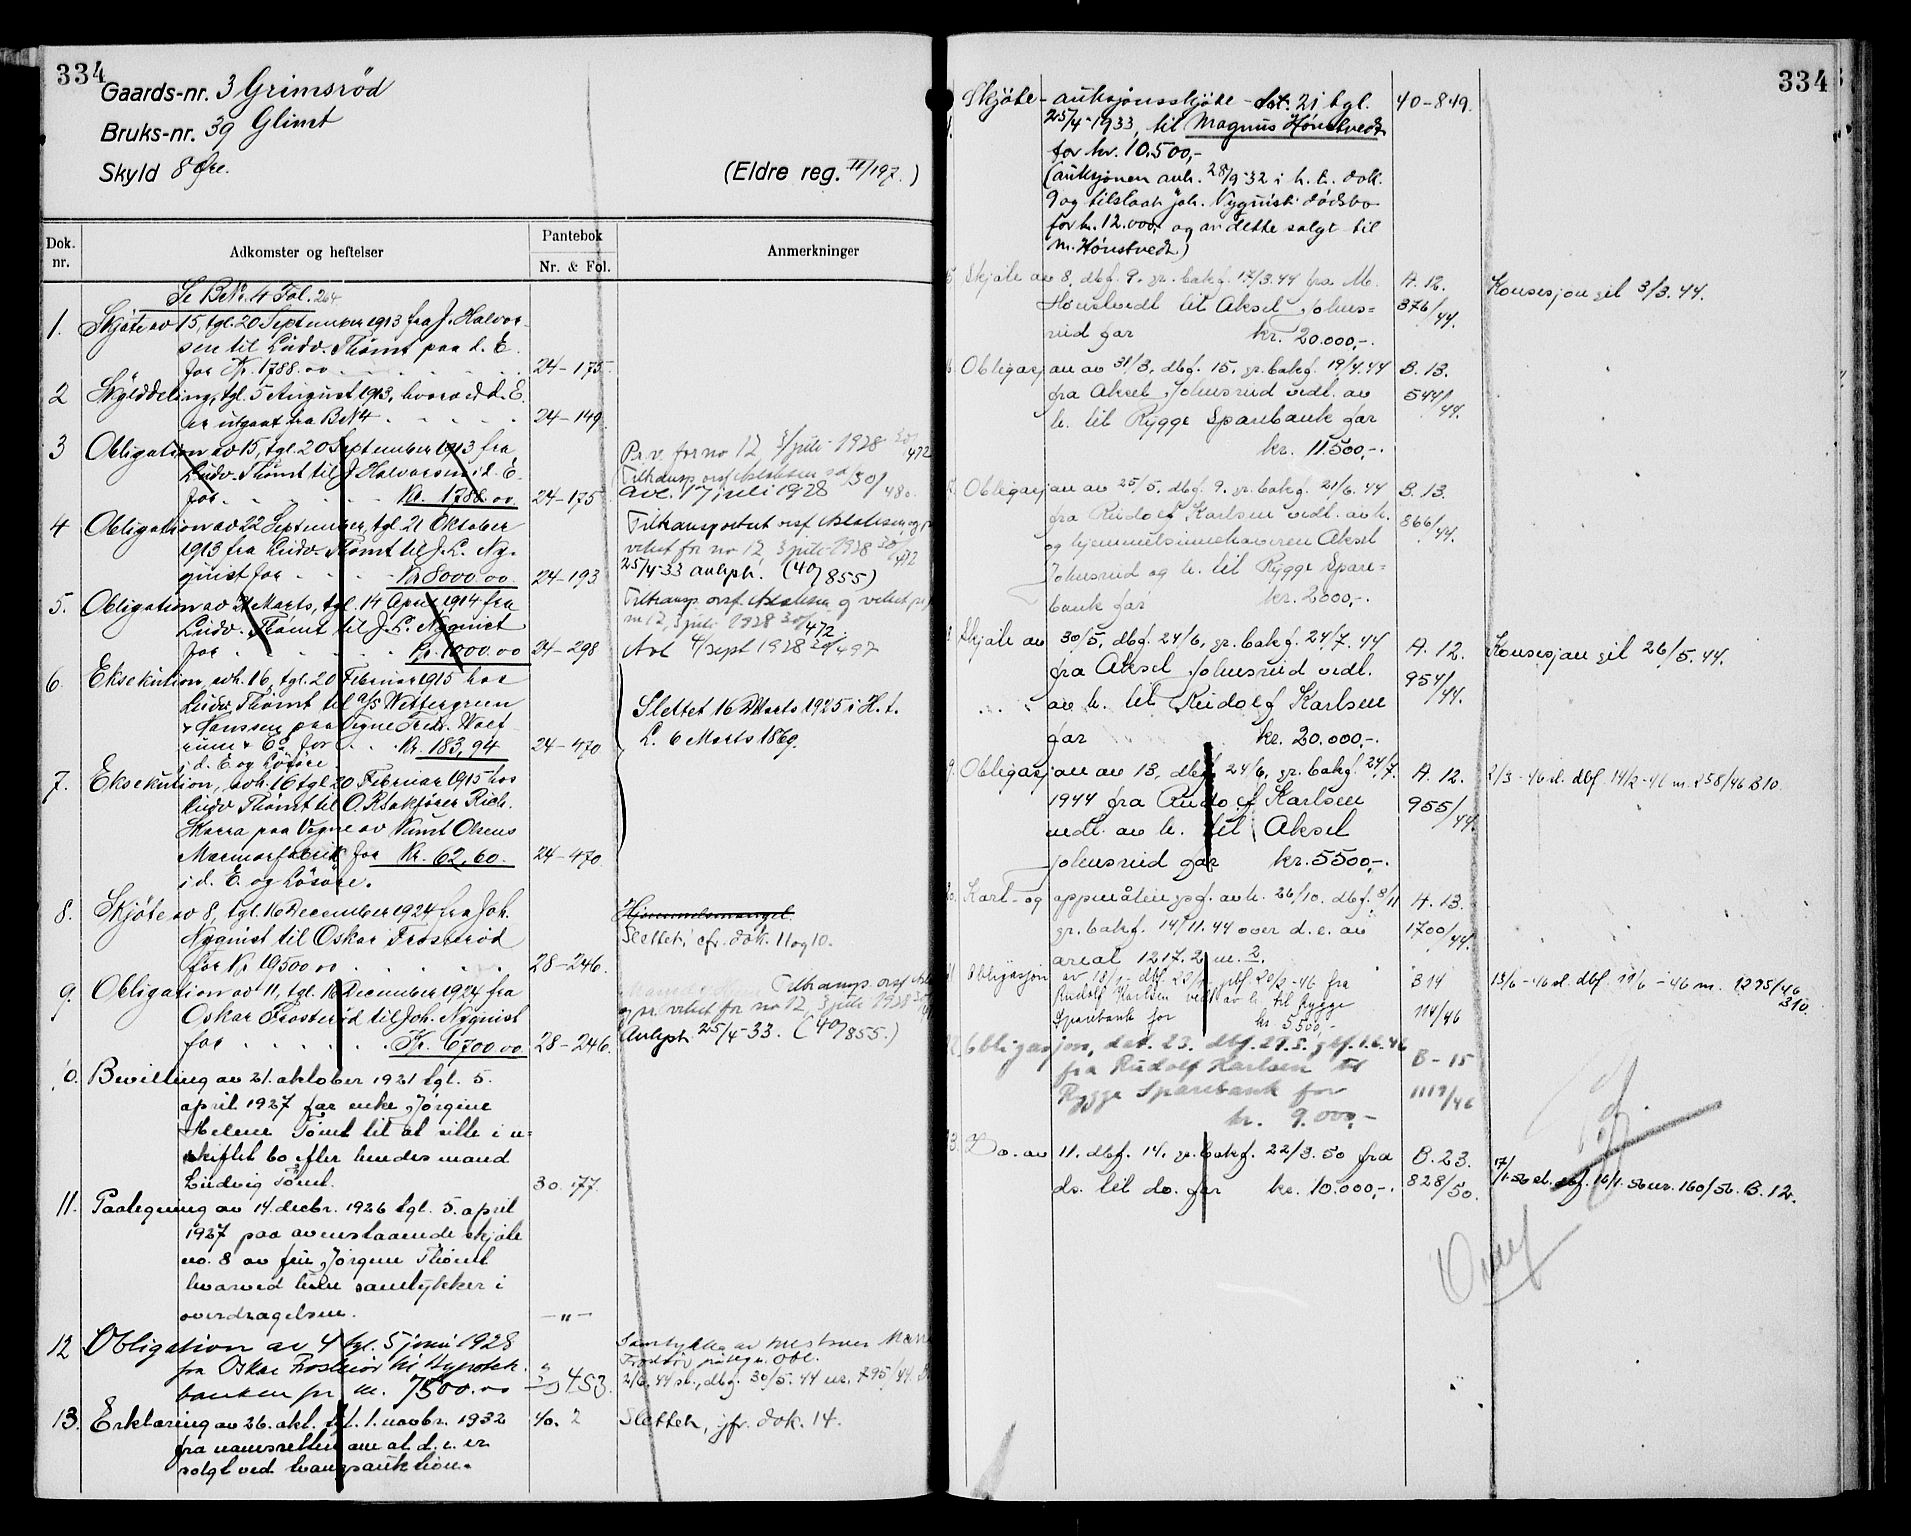 334
Gaards-nr. 3 Grimsröd
Bruks-nr. 39 Glimt
Skyld 8 Øre.
(Eldre reg. III/197.)
Dok. nr.
Adkomster og heftelser
Pantebok
Nr. & Fol.
Anmerkninger
Se BNr. 4 Fol. 264
1. Skjöte av 15, tgl. 20 September 1913 fra J. Halvor-
sen til Ludv. Thömt paa d. E.
for Kr. 1788.00 24-175
2 Skylddeling, tgl. 5 August 1913, hvorved d. E.
er utgaat fra BN4 24-149
3 Obligation av 15, tgl. 20 September 1913 fra
Ludv. Thömt til J. Halvorsen i d. E.
for Kr. 1788.00 24-175
Pr. v. for no 12, 3/juli 1928 30/472
Avl. 17 juli 1928 30/480
4 Obligation av 22 September, tgl. 21 Oktober
1913 fra Ludv. Thömt til J. L. Ny-
quist for Kr 8000.00 24-193
viket for no 12, 3 juli 1928 30/472
25/4-33 avlyst. (40/855)
5. Obligation av 31 Marts, tgl. 14 April 1914 fra
Ludv. Thömt til J. L. Nyquist
for Kr. 1000.00 24-298
no 12, 3 juli 1928 30/472.
Avl 4/sept 1928 30/497
6. Eksekution, avh. 16, tgl. 20 Februar 1915 hos
Ludv. Thömt til A/S Wettergreen
& Hanssen paa Vegne Fredr. Wolf
& Co for Kr. 183,94 24-470
i d. E. og Lösöre.
Slettet 16 Marts 1925 i H. t.
L. 6 Marts 1869.
7. Eksekution, avh. 16 tgl 20 Februar 1915 hos
Ludv Thömt til O.R.Sakförer Rich.
Skarra paa Vegne av Knut Olsens
Marmorfabrik for Kr. 62,60. 24-470
i d. E. og Lösöre.
8. Skjöte av 8, tgl. 16 December 1924 fra Joh.
Nyquist til Oskar Frosteröd
for Kr 19500.00 28-246.
Hjemmelsmangel.
Slettet, cfr. dok. 11 og 10.
9. Obligation av 11, tgl. 16 December 1924 fra
Oskar Frosteröd til Joh. Nyquist
for Kr. 6700.00 28-246.
og pr. viket for no 12, 3 juli 1928
Avlyst 25/4-33. (40/855.)
10. Bevilling av 21. oktober 1921 tgl. 5.
april 1927 for enke Jørgine
Helene Tømt til at sitte i u-
skiftet bo efter hendes mand
Ludvig Tömt. 30. 177.
11. Paategning av 14. decbr. 1926 tgl. 5. april
1927 paa ovenstaaende skjøte
no. 8 av fru Jørgine Thömt
hvorved hun samtykker i
overdragelsen. —"—
12 Obligation av 4 tgl. 5 juni 1928
fra Oskar Frosterød til Hypotek-
banken for kr. 7500.00 30 453.
Samtykke av
2/6. 44 sl., dbf. 30/5. 44 nr. 795/44.
13. Erklæring av 26. okt. tgl. 1. novbr. 1932 40. 2
fra namsretten om at d. e. er
solgt ved tvangsauktion.
Slettet, jfr. dok. 14.
334
Skjöte - auksjonsskjöte - dat. 21 tgl. 40-849.
25/4-1933, til Magnus Hönstvedt
for kr. 10.500,-
(auksjonen avh. 28/9-32 i h. t. dok.
9 og tilslaat Joh. Nyquist dödsbo
for kr. 12.000,- og av dette solgt til
M. Hönstvedt.)
Skjöte av 8, dbf. 9. gr. bokf. 17/3.44 fra M. A. 12.
Hönstvedt til Aksel Johns- 376/44.
rud for kr. 20.000,-.
Konsesjon git 3/3.44.
Obligasjon av 31/3, dbf. 15, gr. bokf. 19/4.44 B. 13.
fra Aksel Johnsrud vedt. av 544/44.
h. til Rygge Sparebank for
kr. 11.500,-.
Obligasjon av 25/5, dbf. 9. gr. bokf. 21/6. 44 B. 13.
fra Rudolf Karlsen vedt. av h. 866/44.
og hjemmelsinnehaveren Aksel
Johnsrud og h. til Rygge Spare-
bank for kr. 2000,-.
Skjöte av 30/5, dbf 24/6, gr. bokf. 24/7. 44 A. 12.
fra Aksel Johnsrud vedt. 954/44.
av h. til Rudolf Karlsen
for kr. 20.000,-.
Konsesjon git 26/5.44.
Obligasjon av 13, dbf 24/6, gr. bokf. 24/7. A. 12.
1944 fra Rudolf Karlsen 955/44.
vedt. av h. til Aksel
Johnsrud for kr. 5500,-.
2/3-46 sl. dbf 14/2-46 nr. 258/46 B10.
Kart- og oppmålingsf. avh. 26/10. dbf. 8/11 A. 13.
gr. bokf. 14/11.44 over d. e. av 1700/44.
areal 1217.2 m. 2.
Obligasjon av 18/1 dbf. 22/1 gbf. 20/2-46 fra B14
Rudolf Karlsen vedt av h. til Rygge 114/46
Sparebank for kr 5500,-
13/6-46 sl. dbf. 11/6-46 nr. 1295/46
B10.
Obligasjon, dat. 23. dbf. 29.5. gbf. 1.6.46 B-15
fra Rudolf Karlsen til 1119/46
Rygge Sparebank for
kr. 9.000,-
Do. av 11. dbf. 14. gr. bokf. 22/3. 50 fra B. 23.
do. til do. for kr. 10.000,-. 828/50.
17/1-56 sl. dbf. 16/1. 56 nr. 160/56. B. 12.